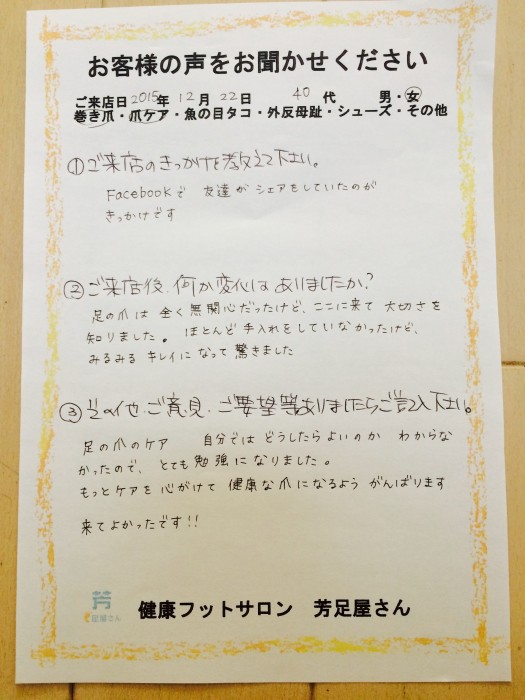 お客様の声をお聞かせください
ご来店日2015年12月22日 40代 男・女
巻き爪・爪ケア・魚の目タコ・外反母趾・シューズ・その他
①ご来店のきっかけを教えて下さい。
Facebookで 友達が シェアをしていたのが
きっかけです
②ご来店後、何か変化はありましたか?
足の爪は 全く無関心だったけど、ここに来て 大切さを
知りました。 ほとんど手入れをしていなかったけど、
みるみる キレイに なって 驚きました
③その他、ご意見、ご要望等ありましたらご記入下さい。
足の爪のケア 自分では どうしたらよいのか わからな
かったので、とても 勉強に なりました。
もっとケアを 心がけて 健康な爪に なるよう がんばります
来てよかったです!!
芳
足屋さん
健康フットサロン 芳足屋さん